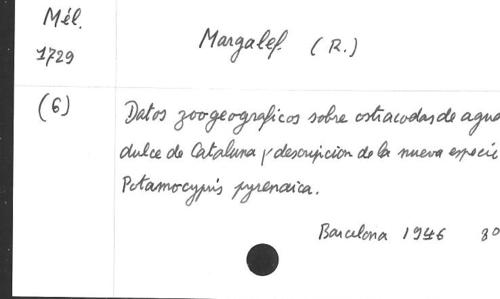 Mél.
1729
Margalef. (R.)
(6)
Datos zoogeograficos sobre ostracodas de agua
dulce de Cataluna y descripcion de la nueva especie
Potamocypris pyrenaica.
Barcelona 1946 8º